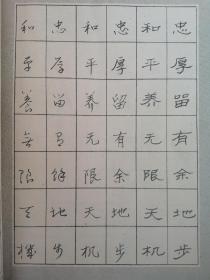 忠厚留有余地步
和平养无限天机
忠厚留有余地步
和平养无限天机
忠厚留有餘地步
和平養無限天機